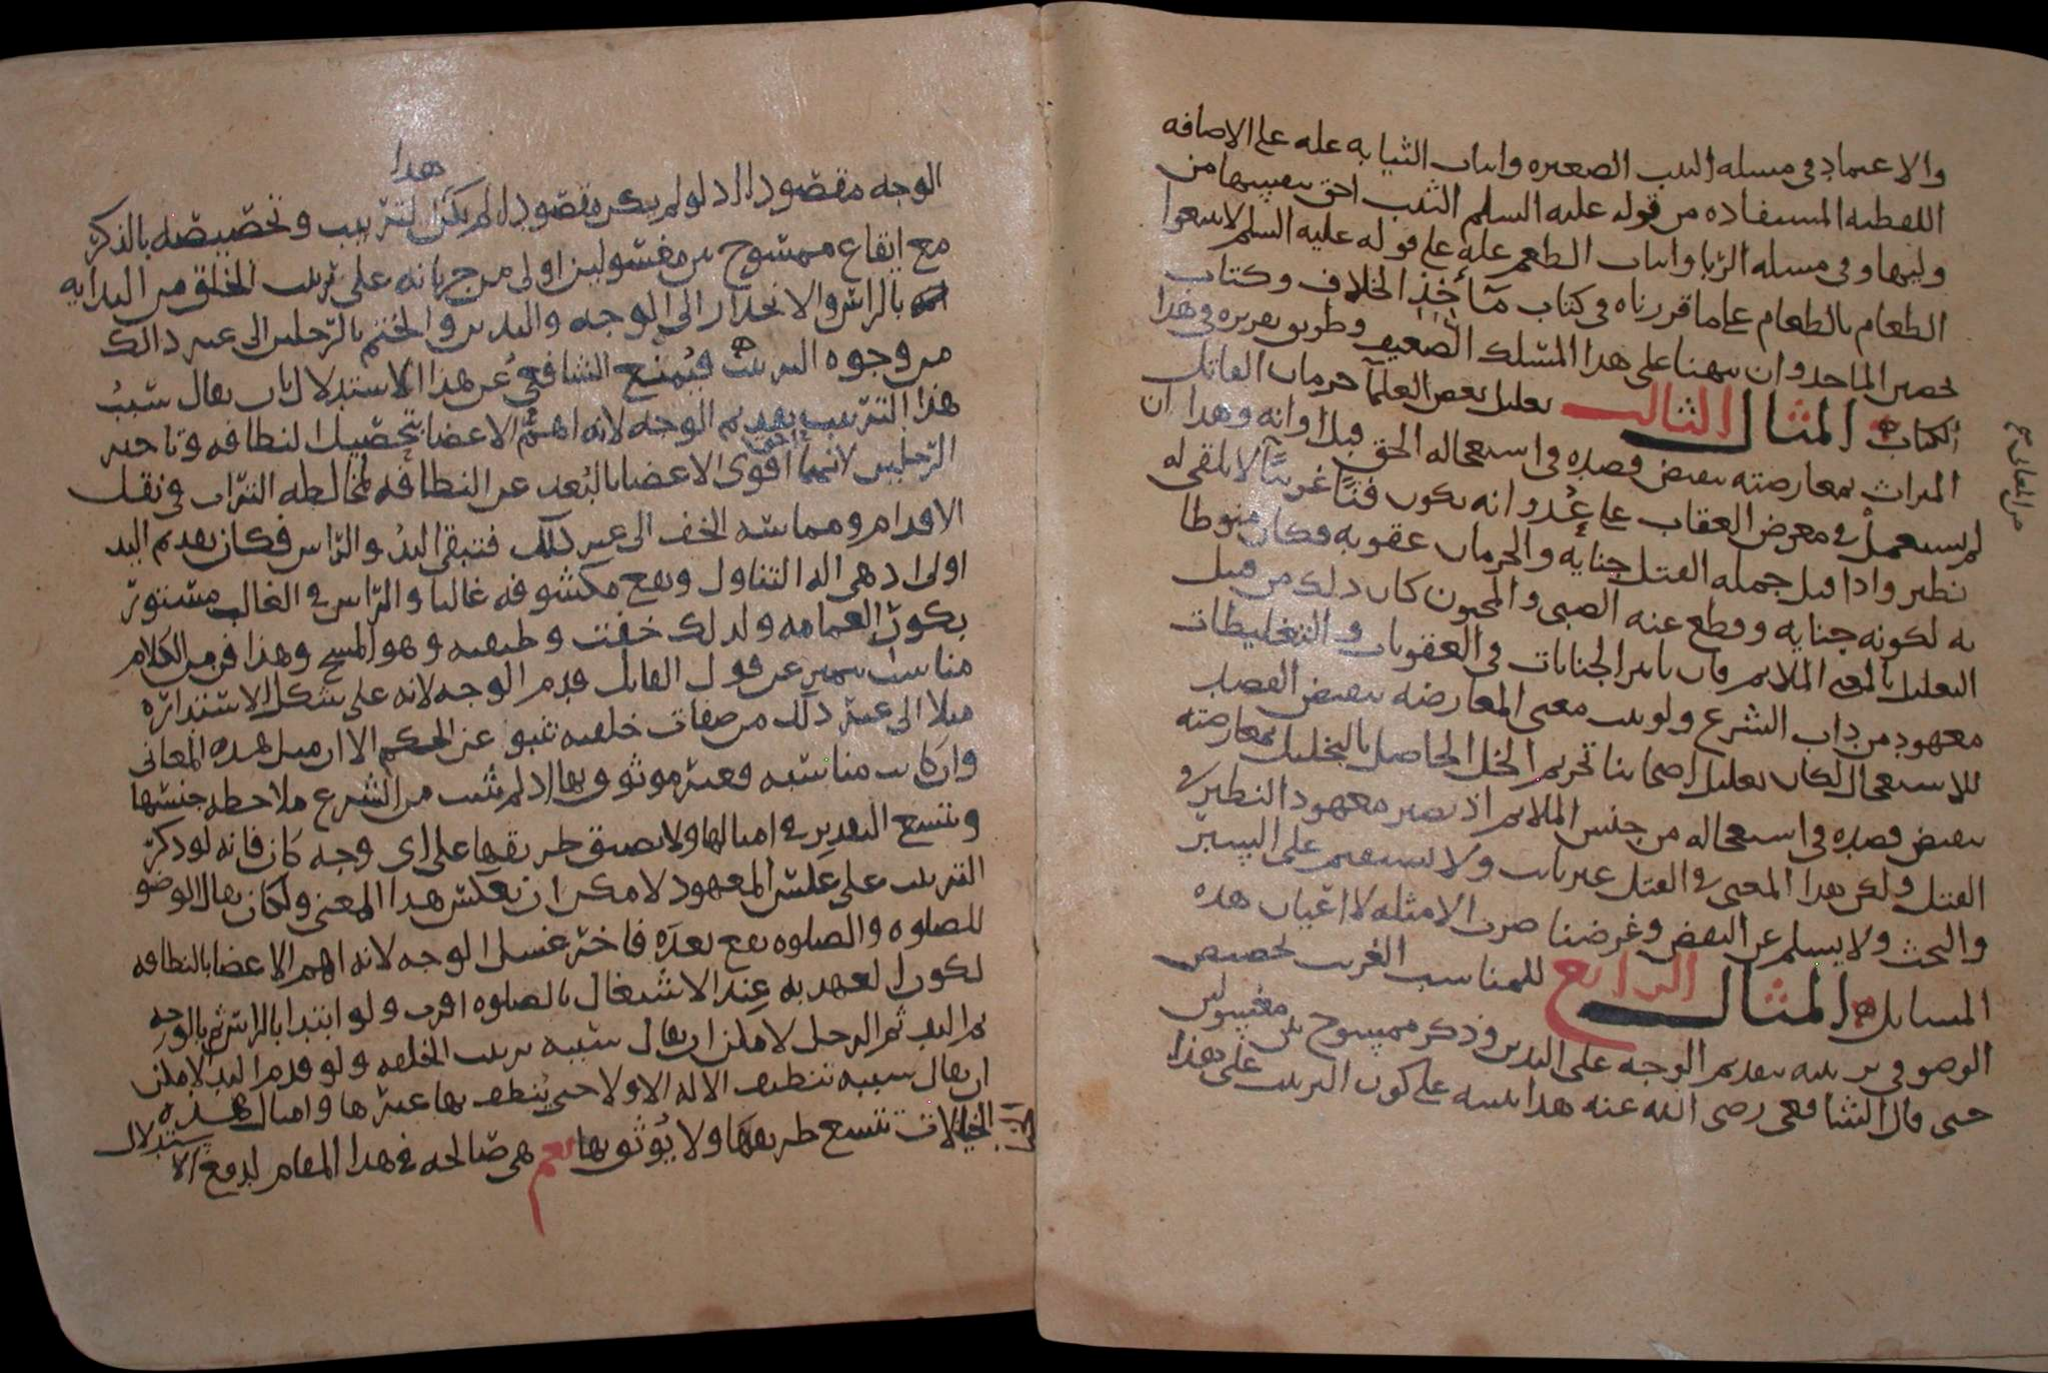 والاعتماد في مسله الثيب الصغيره واثبات الثيابه عله على الاضافه
اللفظيه المستفاده من قوله عليه السلم الثيب احق بنفسها من
وليها وفي مسله الربا واثبات الطعم عله على قوله عليه السلم لا تبيعوا
الطعام بالطعام على ما قررناه في كتاب مآخذ الخلاف وكتاب
تحصين الماخذ وان نبهنا على هذا المسلك الضعيف وطريق تقريره في هذا
الكتاب المثال الثالث تعليل بعض العلمآ حرمان القاتل
الميراث بمعارضته بنقيض قصده في استعجاله الحق قبل اوانه وهذا ان
لم يستعمل في معرض العقاب على عدوانه يكون فنًا غريبًا لا يلفى له
نظير واذا قيل جمله القتل جنايه والحرمان عقوبه فكان منوطا
به لكونه جنايه وقطع عنه الصبي والمجنون كان ذلك من قبيل
التعليل بالمعنى الملايم فان تاثير الجنايات في العقوبات والتغليظات
معهود من داب الشرع ولو ثبت معنى المعارضه بنقيض القصد
للاستعجال لكان تعليل اصحابنا تحريم الخل الحاصل بالتخليل بمعارضته
بنقيض قصده في استعجاله من جنس الملايم اذ يصير معهود النظير في
القتل ولكن هذا المعنى في القتل غير ثابت ولا يستقيم على السبر
والبحث ولا يسلم عن النقض وغرضنا ضرب الامثله لا اعيان هذه
المسايل المثال الرابع للمناسب الغريب تخصيص
الوضو في ترتيبه بتقديم الوجه على اليدين وذكر ممسوح بين مغسولين
حتى قال الشافعي رضي الله عنه هذا ينبه على كون الترتيب على هذا
الوجه مقصودا اذ لو لم يكن مقصودا لم يكن هذا لترتيب وتخصيصه بالذكر
مع ايقاع ممسوح بين مغسولين اولى من جريانه على ترتيب الخلق من البدايه
بالراس والانحدار الى الوجه واليدين والختم بالرجلين الى غير ذالك
من وجوه الترتيب فيُمنع الشافعي عن هذا الاستدلال بان يقال سبب
هذا الترتيب تقديم الوجه لانه اهم الاعضا بتحصيل النظافه وتاخير
الرجلين لانهما اقوى الاعضا بالبُعد عن النظافه لمخالطه التراب في نقل
الاقدام ومماسه الخف الى غير ذلك فتبقى اليد والراس فكان تقديم اليد
اولى اذ هي اله التناول وتقع مكشوفه غالبا والراس في الغالب مستور
بكور العمامه ولذلك خففت وظيفته وهو المسح وهذا فن من الكلام
مناسب يتميز عن قول القايل قدم الوجه لانه على شكل الاستداره
مثلا الى غير ذلك من صفات خلقيه تنبو عن الحكم الا ان مثل هذه المعاني
وان كانت مناسبه فغير موثوق بها اذ لم يثبت من الشرع ملاحظه جنسها
ويتسع التقدير في امثالها ولا يضيق طريقها على اي وجه كان فانه لو ذكر
الترتيب على عكس المعهود لامكن ان يعكس هذا المعنى ولكان يقال الوضو
للصلوه والصلوه تقع بعده فاخر غسل الوجه لانه اهم الاعضا بالنظافه
لكون العهد به عند الاشتغال بالصلوه اقرب ولو ابتدا بالراس ثم بالوجه
ثم اليد ثم الرجل لامكن ان يقال سببه ترتيب الخلقه ولو قدم اليد لامكن
ان يقال سببه تنظيف الاله الاولا حتى يُنظف بها غيرها وامثال هذه
الخيالات تتسع طريقها ولا يُوثق بها نعم هي صالحه في هذا المقام لدفع الاستدلال